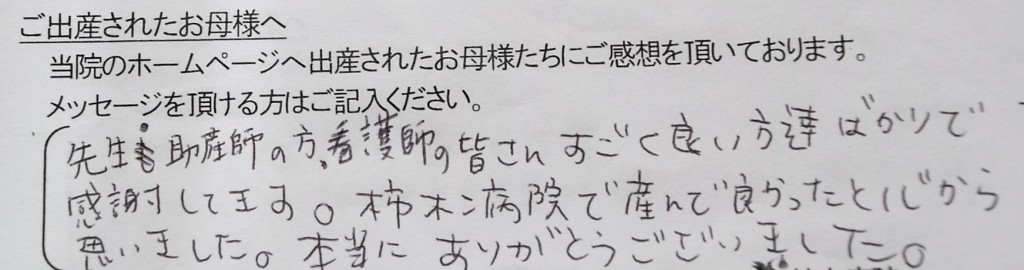 ご出産されたお母様へ
当院のホームページへ出産されたお母様たちにご感想を頂いております。
メッセージを頂ける方はご記入ください。
先生も助産師の方、看護師の皆さんすごく良い方達ばかりで
感謝してます。柿木病院で産んで良かったと心から
思いました。本当にありがとうございました。